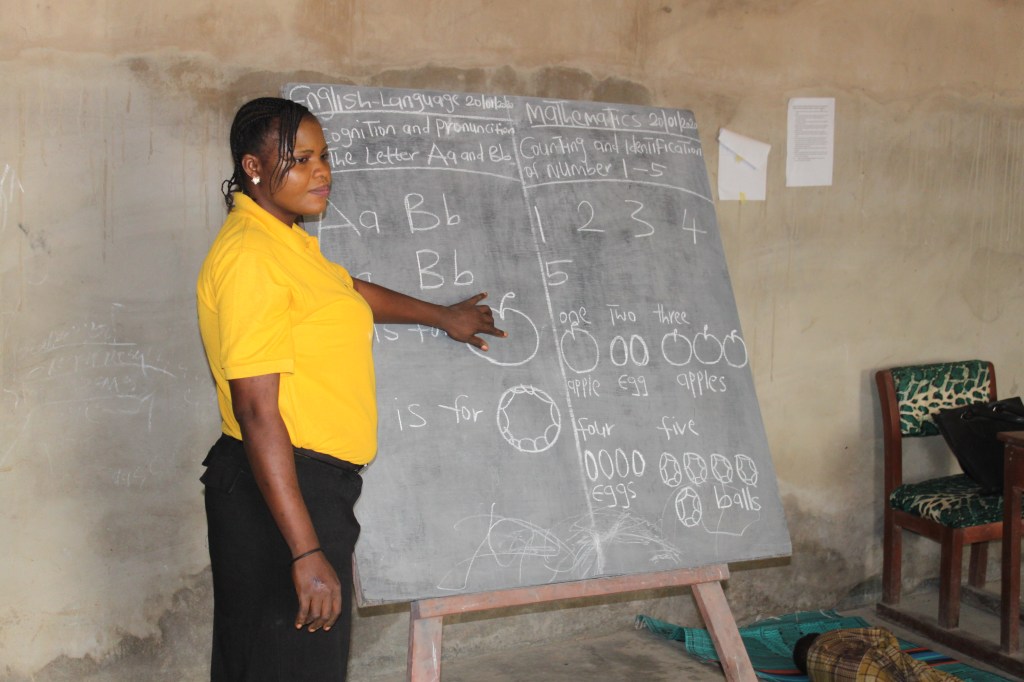 English-Language 20/01/2020
cognition and pronuncition
The Letter Aa and Bb
Aa Bb
a Bb
is for
is for
Mathematics 20/01/2020
Counting and Identification
of number 1-5
1 2 3 4
5
one Two three
apple Egg apples
four five
Eggs balls